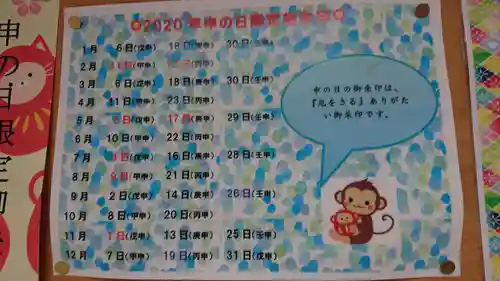 2020 申の日限定御朱印日
1月 6日(戊申) 18日(庚申) 30日(壬申)
2月 11日(甲申) 23日(丙申)
3月 6日(戊申) 18日(庚申) 30日(壬申)
4月 11日(甲申) 23日(丙申)
5月 5日(戊申) 17日(庚申) 29日(壬申)
6月 10日(甲申) 22日(丙申)
7月 4日(戊申) 16日(庚申) 28日(壬申)
8月 9日(甲申) 21日(丙申)
9月 2日(戊申) 14日(庚申) 26日(壬申)
10月 8日(甲申) 20日(丙申)
11月 1日(戊申) 13日(庚申) 25日(壬申)
12月 7日(甲申) 19日(丙申) 31日(戊申)
申の日の御朱印は、
『厄をさる』ありがた
い御朱印です。
申の日限定御